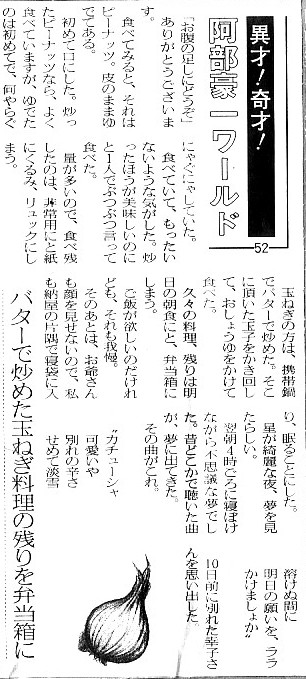 異才!奇才!
阿部豪一ワールド
52
「お腹の足しにどうぞ」
ありがとうございま
す。
食べてみると、それは
ピーナッツ。皮のままゆ
でてある。
初めて口にした。炒っ
たピーナッツなら、よく
食べていますが、ゆでた
のは初めてで、何やらぐ
にゃぐにゃしていた。
食べていて、もったい
ないような気がした。炒
ったほうが美味しいのに
と1人でぶつぶつ言って
食べた。
量が多いので、食べ残
したのは、非常用にと紙
にくるみ、リュックにし
まう。
玉ねぎの方は、携帯鍋
でバターで炒めた。そこ
に頂いた玉子をかき回し
て、おしょうゆをかけて
食べた。
久々の料理、残りは明
日の朝食にと、弁当箱に
しまう。
ご飯が欲しいのだけれ
ども、それも我慢。
そのあとは、お爺さん
も顔を見せないので、私
も納屋の片隅で寝袋に入
り、眠ることにした。
星が綺麗な夜、夢を見
たらしい。
翌朝4時ごろに寝ぼけ
ながら不思議な夢でし
た。昔どこかで聴いた曲
が、夢に出てきた。
その曲がこれ。
〝カチューシャ
可愛いや
別れの辛さ
せめて淡雪
溶けぬ間に
明日の願いを、ララ
かけましょか〟
10日前に別れた幸子さ
んを思い出した。
バターで炒めた玉ねぎ料理の残りを弁当箱に